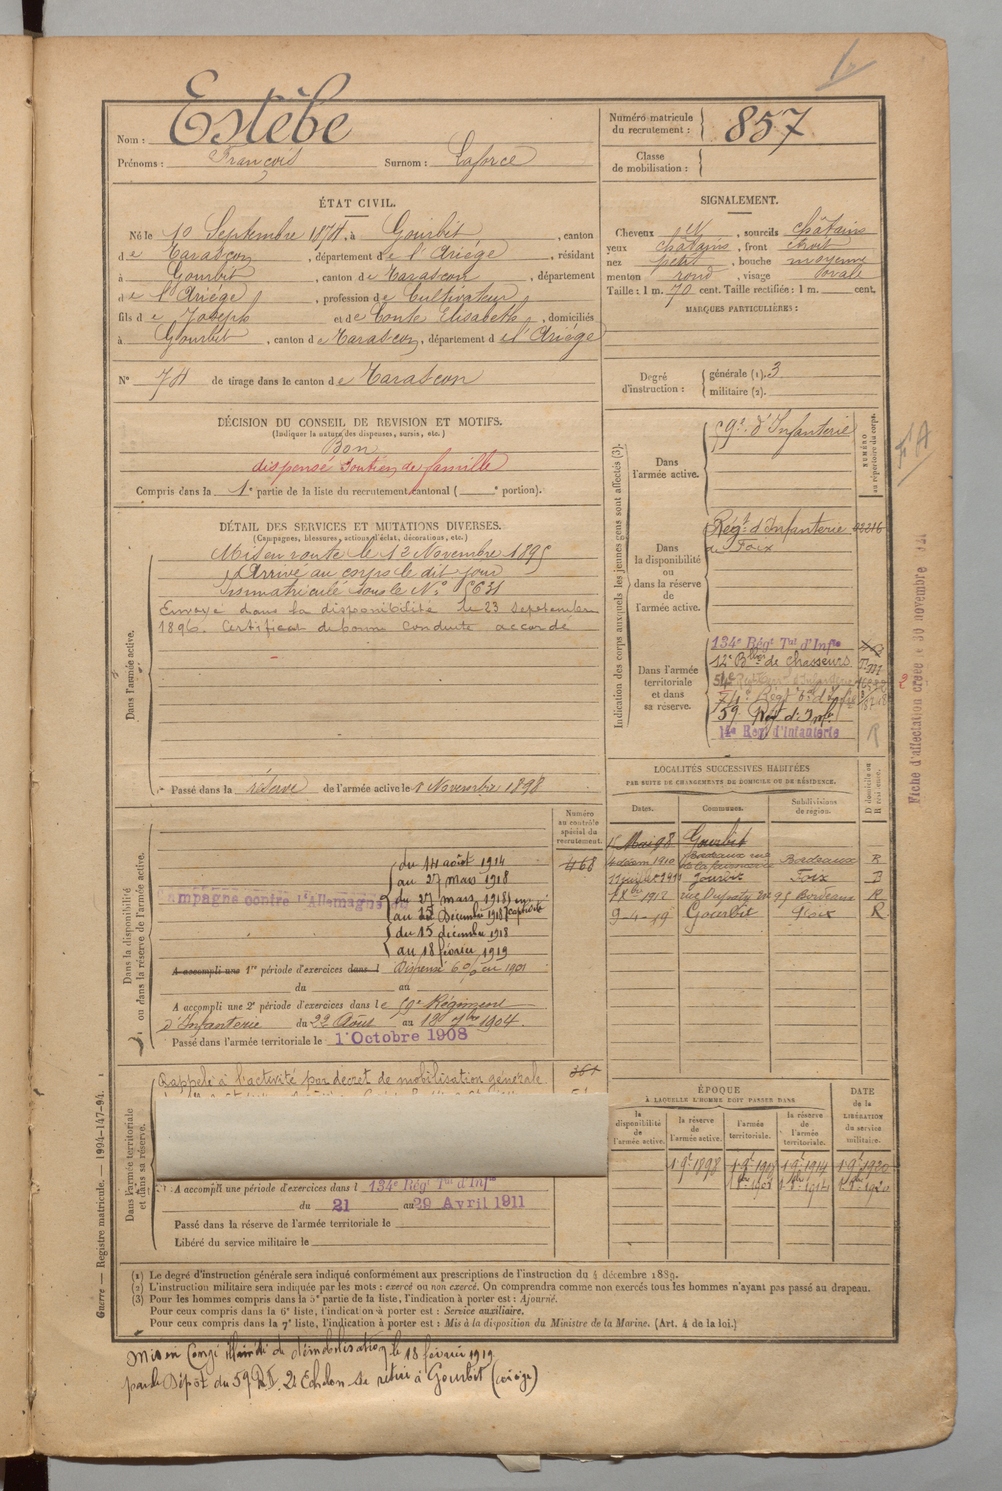 Nom : Estèbe
Prénoms : François Surnom : Laforce
Numéro matricule du recrutement : 857
Classe de mobilisation :
ÉTAT CIVIL.
Né le 10 Septembre 1874, à Gourbit, canton
de Tarascon, département de l'Ariège, résidant
à Gourbit, canton de Tarascon, département
de l'Ariége, profession de Cultivateur
fils de Joseph et de Conte Elisabeth, domiciliés
à Gourbit, canton de Tarascon, département de l'Ariége
N° 74 de tirage dans le canton de Tarascon
SIGNALEMENT.
Cheveux et, sourcils châtains
yeux châtains, front étroit
nez petit, bouche moyenne
menton rond, visage ovale
Taille : 1 m. 70 cent. Taille rectifiée : 1 m. cent.
MARQUES PARTICULIÈRES :
Degré d'instruction : générale (1). 3
militaire (2).
DÉCISION DU CONSEIL DE REVISION ET MOTIFS.
(Indiquer la nature des dispenses, sursis, etc.)
Bon
dispensé Soutien de famille
Compris dans la 1e partie de la liste du recrutement cantonal ( e portion).
DÉTAIL DES SERVICES ET MUTATIONS DIVERSES.
(Campagnes, blessures, actions d'éclat, décorations, etc.)
Dans l'armée active.
Mis en route le 13 Novembre 1895
Arrivé au corps le dit jour
Immatriculé sous le N° 5631
Envoyé dans la disponibilité le 23 Septembre
1896. Certificat de bonne Conduite accordé
Passé dans la réserve de l'armée active le 1 Novembre 1898
Indication des corps auxquels les jeunes gens sont affectés (3).
NUMÉRO au répertoire du corps.
Dans l'armée active.
59e d'Infanterie
Dans la disponibilité ou dans la réserve de l'armée active.
Régt d'Infanterie 02216
de Foix
Dans l'armée territoriale et dans sa réserve.
134e Régt Tal d'Infie
12e Bllon de Chasseurs
59 Régt d'Inf.
14e Régt d'Infanterie R
F A
Fiche d'affectation créée le 30 novembre 921
LOCALITÉS SUCCESSIVES HABITÉES
PAR SUITE DE CHANGEMENTS DE DOMICILE OU DE RÉSIDENCE.
Dates. Communes. Subdivisions de région. D domicile ou R résidence.
15 Mai 98 Gourbit
4 décem 1910 Bordeaux rue Bordeaux R
Foix
1912 rue Dupaty 95 Bordeaux R
9-4-19 Gourbit Foix R
Numéro au contrôle spécial du recrutement.
468
Dans la disponibilité ou dans la réserve de l'armée active.
Campagne contre l'Allemagne du
du 14 août 1914
au 27 mars 1918
du 27 mars 1918 en
au 15 Décembre 1918 captivité
du 15 décembre 1918
au 18 février 1919
A accompli une 1re période d'exercices dans l Dispensé 6% en 1901
du au
A accompli une 2e période d'exercices dans le 59e Régiment
d'Infanterie du 22 Août au 18 7bre 1904.
Passé dans l'armée territoriale le 1 Octobre 1908
Dans l'armée territoriale et dans sa réserve.
Rappelé à l'activité par décret de mobilisation générale
A accompli une période d'exercices dans l 134e Régt Tal d'Infie
du 21 au 29 Avril 1911
Passé dans la réserve de l'armée territoriale le
Libéré du service militaire le
ÉPOQUE
À LAQUELLE L'HOMME DOIT PASSER DANS
DATE de la LIBÉRATION du service militaire.
la disponibilité de l'armée active. la réserve de l'armée active. l'armée territoriale. la réserve de l'armée territoriale.
1 9e 1898 1 9e 1908 1 9e 1914 1 9e 1920
(1) Le degré d'instruction générale sera indiqué conformément aux prescriptions de l'instruction du 4 décembre 1889.
(2) L'instruction militaire sera indiquée par les mots : exercé ou non exercé. On comprendra comme non exercés tous les hommes n'ayant pas passé au drapeau.
(3) Pour les hommes compris dans la 5e partie de la liste, l'indication à porter est : Ajourné.
Pour ceux compris dans la 6e liste, l'indication à porter est : Service auxiliaire.
Pour ceux compris dans la 7e liste, l'indication à porter est : Mis à la disposition du Ministre de la Marine. (Art. 4 de la loi.)
Guerre — Registre matricule. — 1994-147-94.
Mis en Congé illimité de démobilisation le 18 février 1919
par le Dépôt du 59 R.I. 2e Echelon se retire à Gourbit (Ariège)